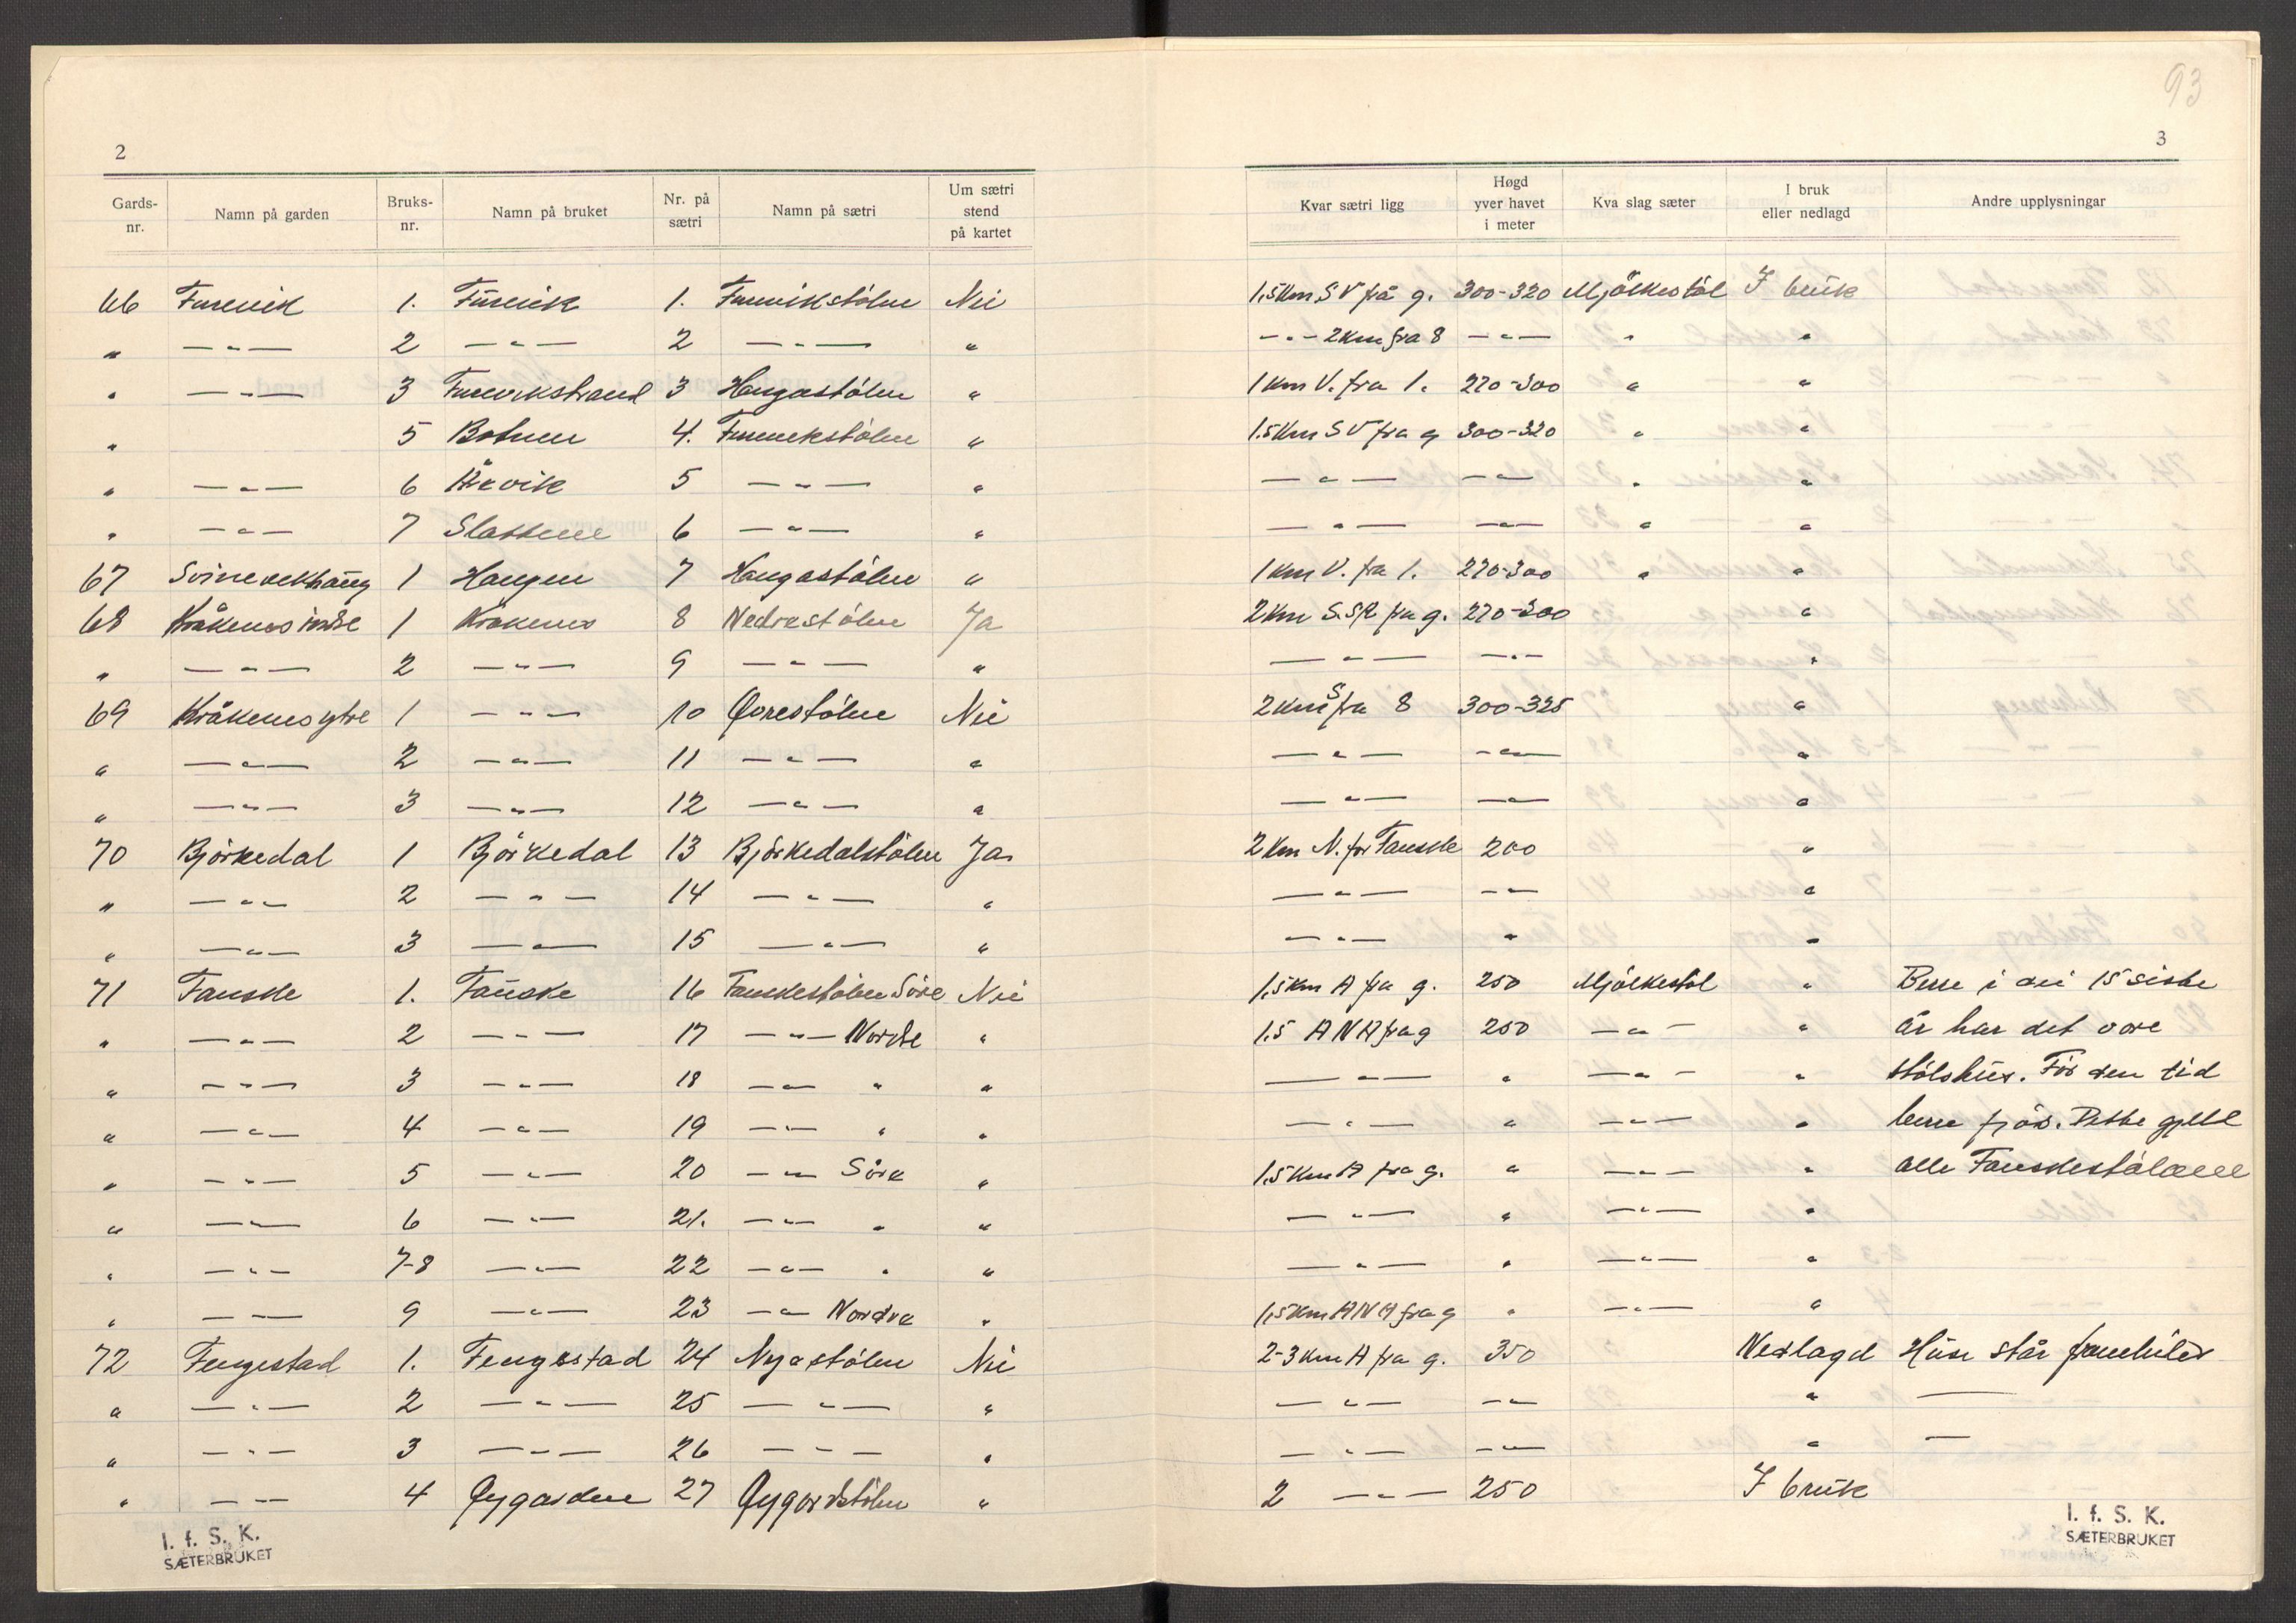 93
2
3
Gards-nr. Namn på garden Bruks-nr. Namn på bruket Nr. på sætri Namn på sætri Um sætri stend på kartet Kvar sætri ligg Høgd yver havet i meter Kva slag sæter I bruk eller nedlagd Andre upplysningar
66 Furevik 1. Furevik 1. Furevikstölen Nei 1,5 Km SV frå g. 300-320 Mjölkestöl I bruk
" — " — 2 — " — 2 — " — " — " — 2 Km fra 8 — " — " "
" — " — 3 Furevikstrand 3 Haugastölen " 1 Km V. fra 1. 270-300 " "
" 5 Botnen 4. Furevikstölen " 1.5 Km SV fra g 300-320 " "
" — " — 6 Håvik 5 — " — " — " — — " — " "
" — " — 7 Slattene 6 — " — " — " — — " — " "
67 1 Haugen 7 Haugastölen " 1 Km V. fra 1. 270-300 " "
68 Kråkenes indre 1 Kråkenes 8 Nedrestölen Ja 2 Km S.SA fra g. 270-300 "
" — " — 2 — " — 9 — " — " — " — — " — "
69 Kråkenes ytre 1 — " — 10 Övrestölen Nei 2 Km S fra 8 300-325 "
" — " — 2 — " — 11 — " — " — " — — " — "
" — " — 3 — " — 12 — " — " — " — — " — "
70 Björkedal 1 Björkedal 13 Björkedalstölen Ja 2 Km N. for Fauske 200 "
" — " — 2 — " — 14 — " — " — " — — " — "
" — " — 3 — " — 15 — " — " — " — " "
71 Fauske 1. Fauske 16 Fauskestölen Söre Nei 1,5 Km A fra g. 250 Mjölkestöl " Bere i dei 15 siste
" — " — 2 — " — 17 — " — Nordre " 1.5 ANA fra g 250 — " — " år har det vore
" — " — 3 — " — 18 — " — " " — " — " — " — " stölshus. För den tid
" — " — 4 — " — 19 — " — " " — " — " — " — " bere fjös. Dette gjeld
" — " — 5 — " — 20 — " — Söre " 1,5 Km A fra g. " — " — " alle Fauskestölane
" — " — 6 — " — 21. — " — " " — " — " — " — "
" — " — 7-8 — " — 22 — " — " " — " — " — " — "
" — " — 9 — " — 23 — " — Nordre " 1,5 Km ANA fra g " — " — "
72 Fengestad 1. Fengestad 24 Nyastölen Nei 2-3 Km A fra g. 350 Nedlagd Huse står framleides
" — " — 2 — " — 25 — " — " — " — — " — " —
" — " — 3 — " — 26 — " — " — " — — " — " —
" — " — 4 Öygarden 27 Öygardstölen " 2 — " — 250 I bruk
I. f. S. K.
SÆTERBRUKET
I. f. S. K.
SÆTERBRUKET